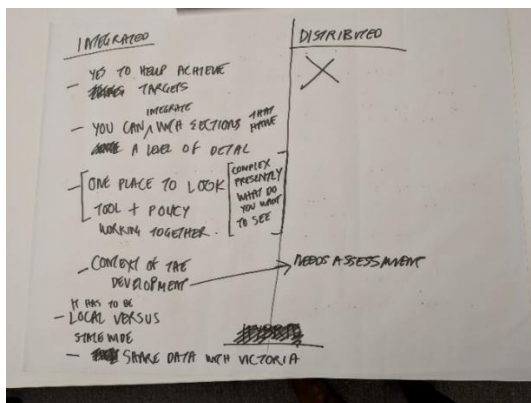 INTEGRATED
DISTRIBUTED
- YES TO HELP ACHIEVE
TARGETS
- YOU CAN INTEGRATE WITH SECTIONS THAT HAVE
A LEVEL OF DETAIL
- ONE PLACE TO LOOK
TOOL + POLICY
WORKING TOGETHER.
COMPLEX
PRESENTLY
WHAT DO
YOU WANT
TO SEE
- CONTEXT OF THE
DEVELOPMENT
NEEDS ASSESSMENT
IT HAS TO BE
- LOCAL VERSUS
STATE WIDE
- SHARE DATA WITH VICTORIA